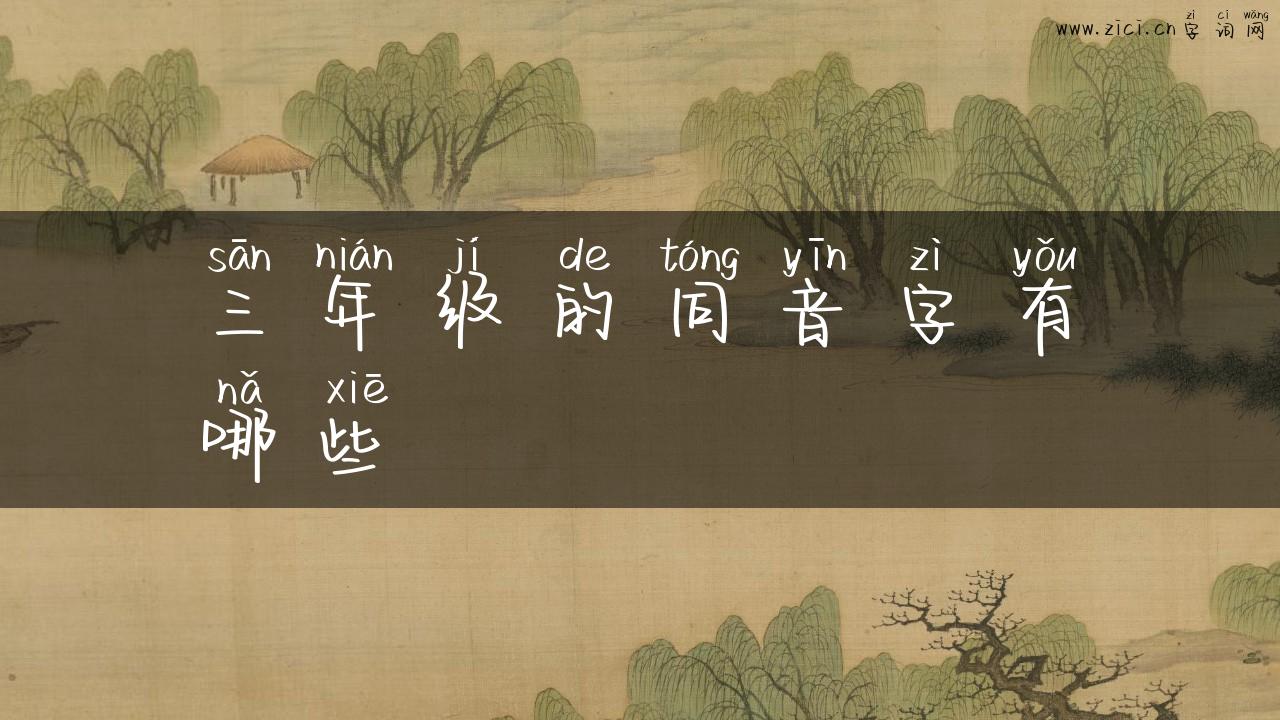 zì cí wǎng
www.zici.cn 字 词 网
sān nián jí de tóng yīn zì yǒu
三 年 级 的 同 音 字 有
nǎ xiē
哪 些